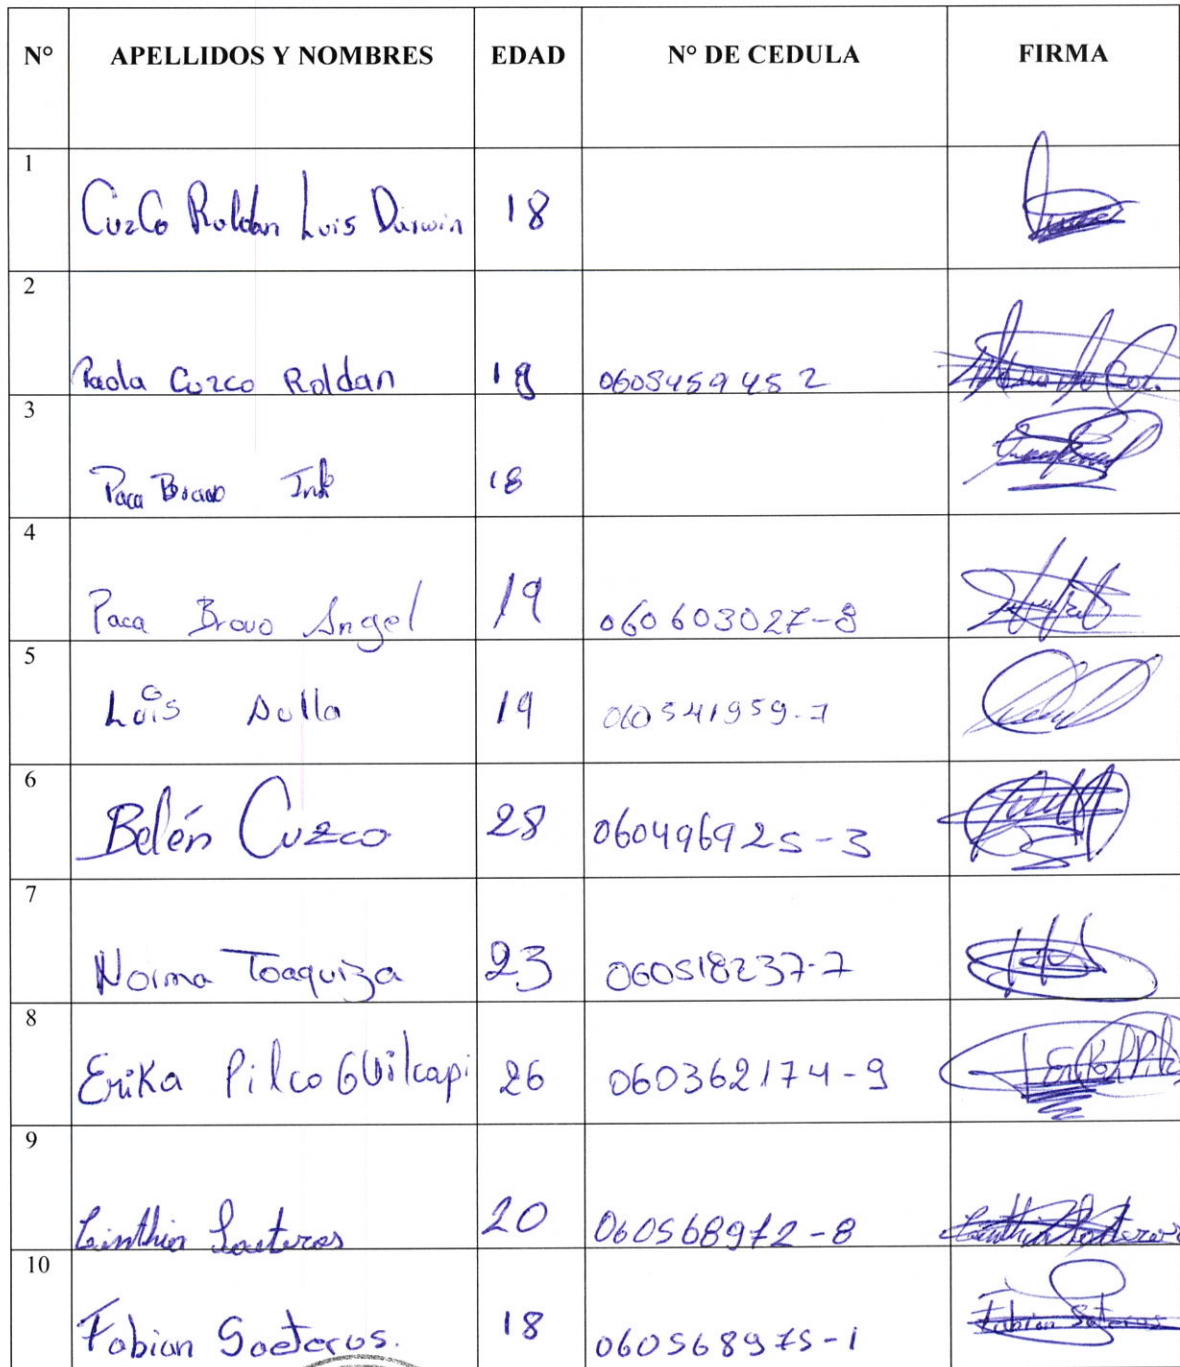 N° APELLIDOS Y NOMBRES EDAD N° DE CEDULA FIRMA
1 Cuzco Roldan Luis Darwin 18
2 Paola Cuzco Roldan 18 0605459452
3 Paca Bravo 18
4 Paca Bravo Angel 19 060603027-8
5 Luis 19 060541959-7
6 Belén Cuzco 28 060496925-3
7 Norma Toaquiza 23 060518237-7
8 Erika Pilco Guilcapi 26 060362174-9
9 Cinthia Saeteros 20 060568972-8
10 Fabian Saeteros. 18 060568975-1 Fabian Saeteros